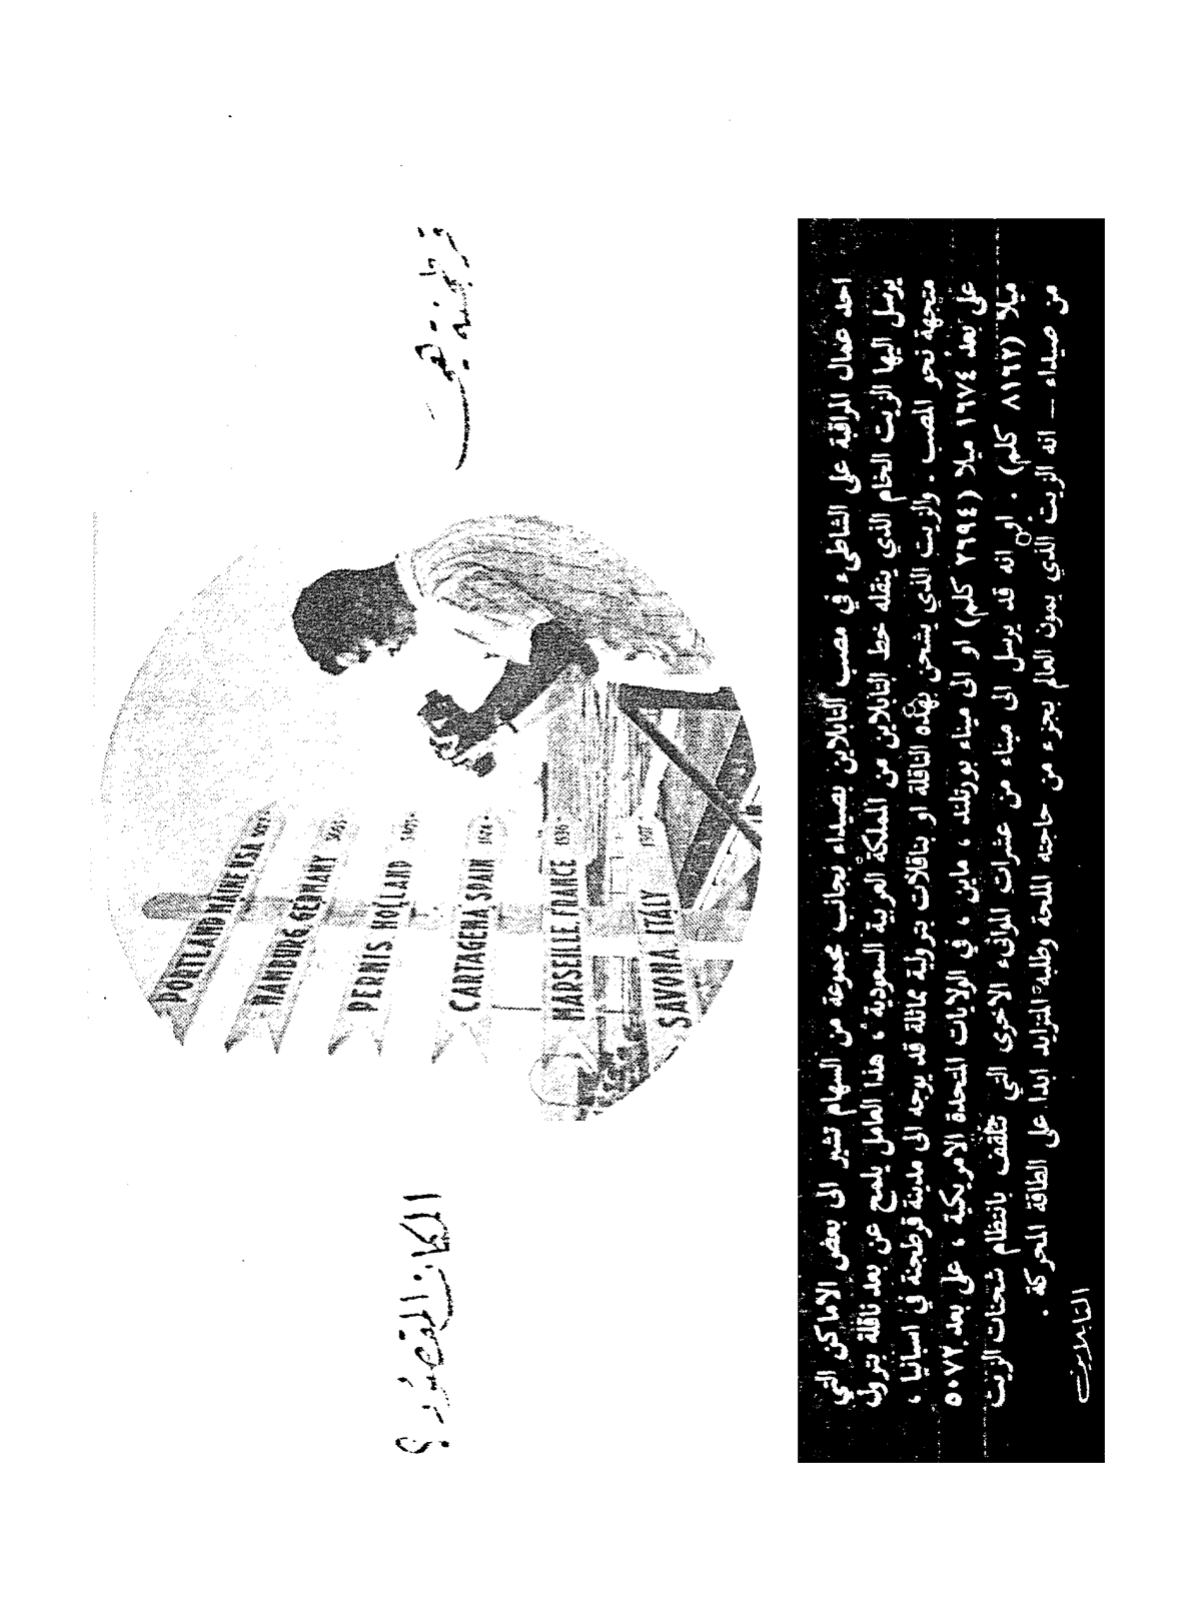 المكان المقصود؟
PORTLAND MAINE USA
HAMBURG GERMANY
PERNIS HOLLAND
CARTAGENA SPAIN
MARSEILLE FRANCE 1536
SAVONA ITALY
احد عمال المراقبة على الشاطىء في مصب التابلاين بصيداء بجانب مجموعة من السهام تشير الى بعض الاماكن التي
يرسل اليها الزيت الخام الذي ينقله خط التابلاين من المملكة العربية السعودية ، هذا العامل يلمح عن بعد ناقلة بترول
متجهة نحو المصب . والزيت الذي يشحن بهذه الناقلة او بناقلات بترولية مماثلة قد يوجه الى مدينة قرطجنة في اسبانيا ،
على بعد ١٦٧٤ ميلا (٢٦٩٤ كلم) او الى ميناء بورتلند ، ماين ، في الولايات المتحدة الامريكية ، على بعد ٥٠٧٢
ميلا (٨١٦٢ كلم) . او انه قد يرسل الى ميناء من عشرات الموانىء الاخرى التي تتلقف بانتظام شحنات الزيت
من صيداء – انه الزيت الذي يمون العالم بجزء من حاجته الملحة وطلبه المتزايد ابدا على الطاقة المحركة .
التابلاين